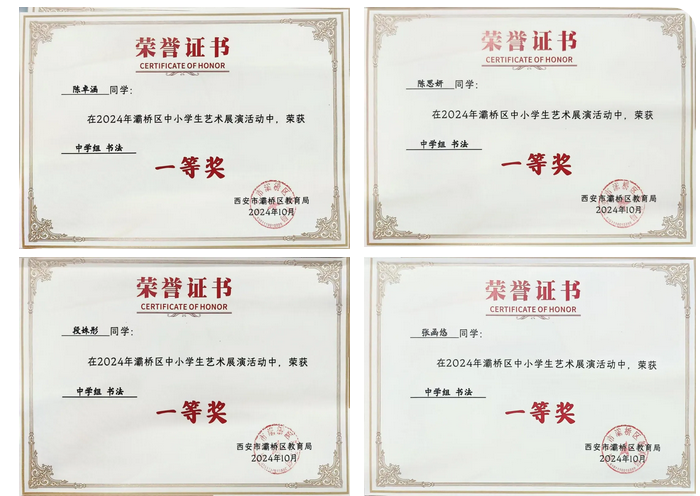 荣誉证书
CERTIFICATE OF HONOR
陈卓涵 同学：
在2024年灞桥区中小学生艺术展演活动中，荣获
中学组 书法
一等奖
西安市灞桥区教育局
2024年10月
荣誉证书
CERTIFICATE OF HONOR
陈思妍 同学：
在2024年灞桥区中小学生艺术展演活动中，荣获
中学组 书法
一等奖
西安市灞桥区教育局
2024年10月
荣誉证书
CERTIFICATE OF HONOR
段姝彤 同学：
在2024年灞桥区中小学生艺术展演活动中，荣获
中学组 书法
一等奖
西安市灞桥区教育局
2024年10月
荣誉证书
CERTIFICATE OF HONOR
张函 同学：
在2024年灞桥区中小学生艺术展演活动中，荣获
中学组 书法
一等奖
西安市灞桥区教育局
2024年10月